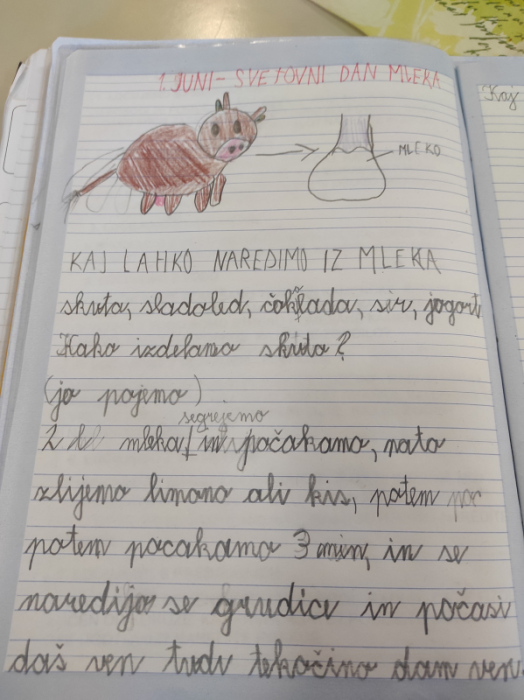 1. JUNI - SVETOVNI DAN MLEKA
MLEKO
KAJ LAHKO NAREDIMO IZ MLEKA
skuta, sladoled, čoklada, sir, jogurt
Kako izdelamo skuto?
(jo pojemo)
segrejemo
2 l mleka in počakamo, nato
zlijemo limono ali kis, potem
potem pocakamo 3 min, in se
naredijo se grudice in počasi
daš ven tudi tekočino dam ven.
Kaj